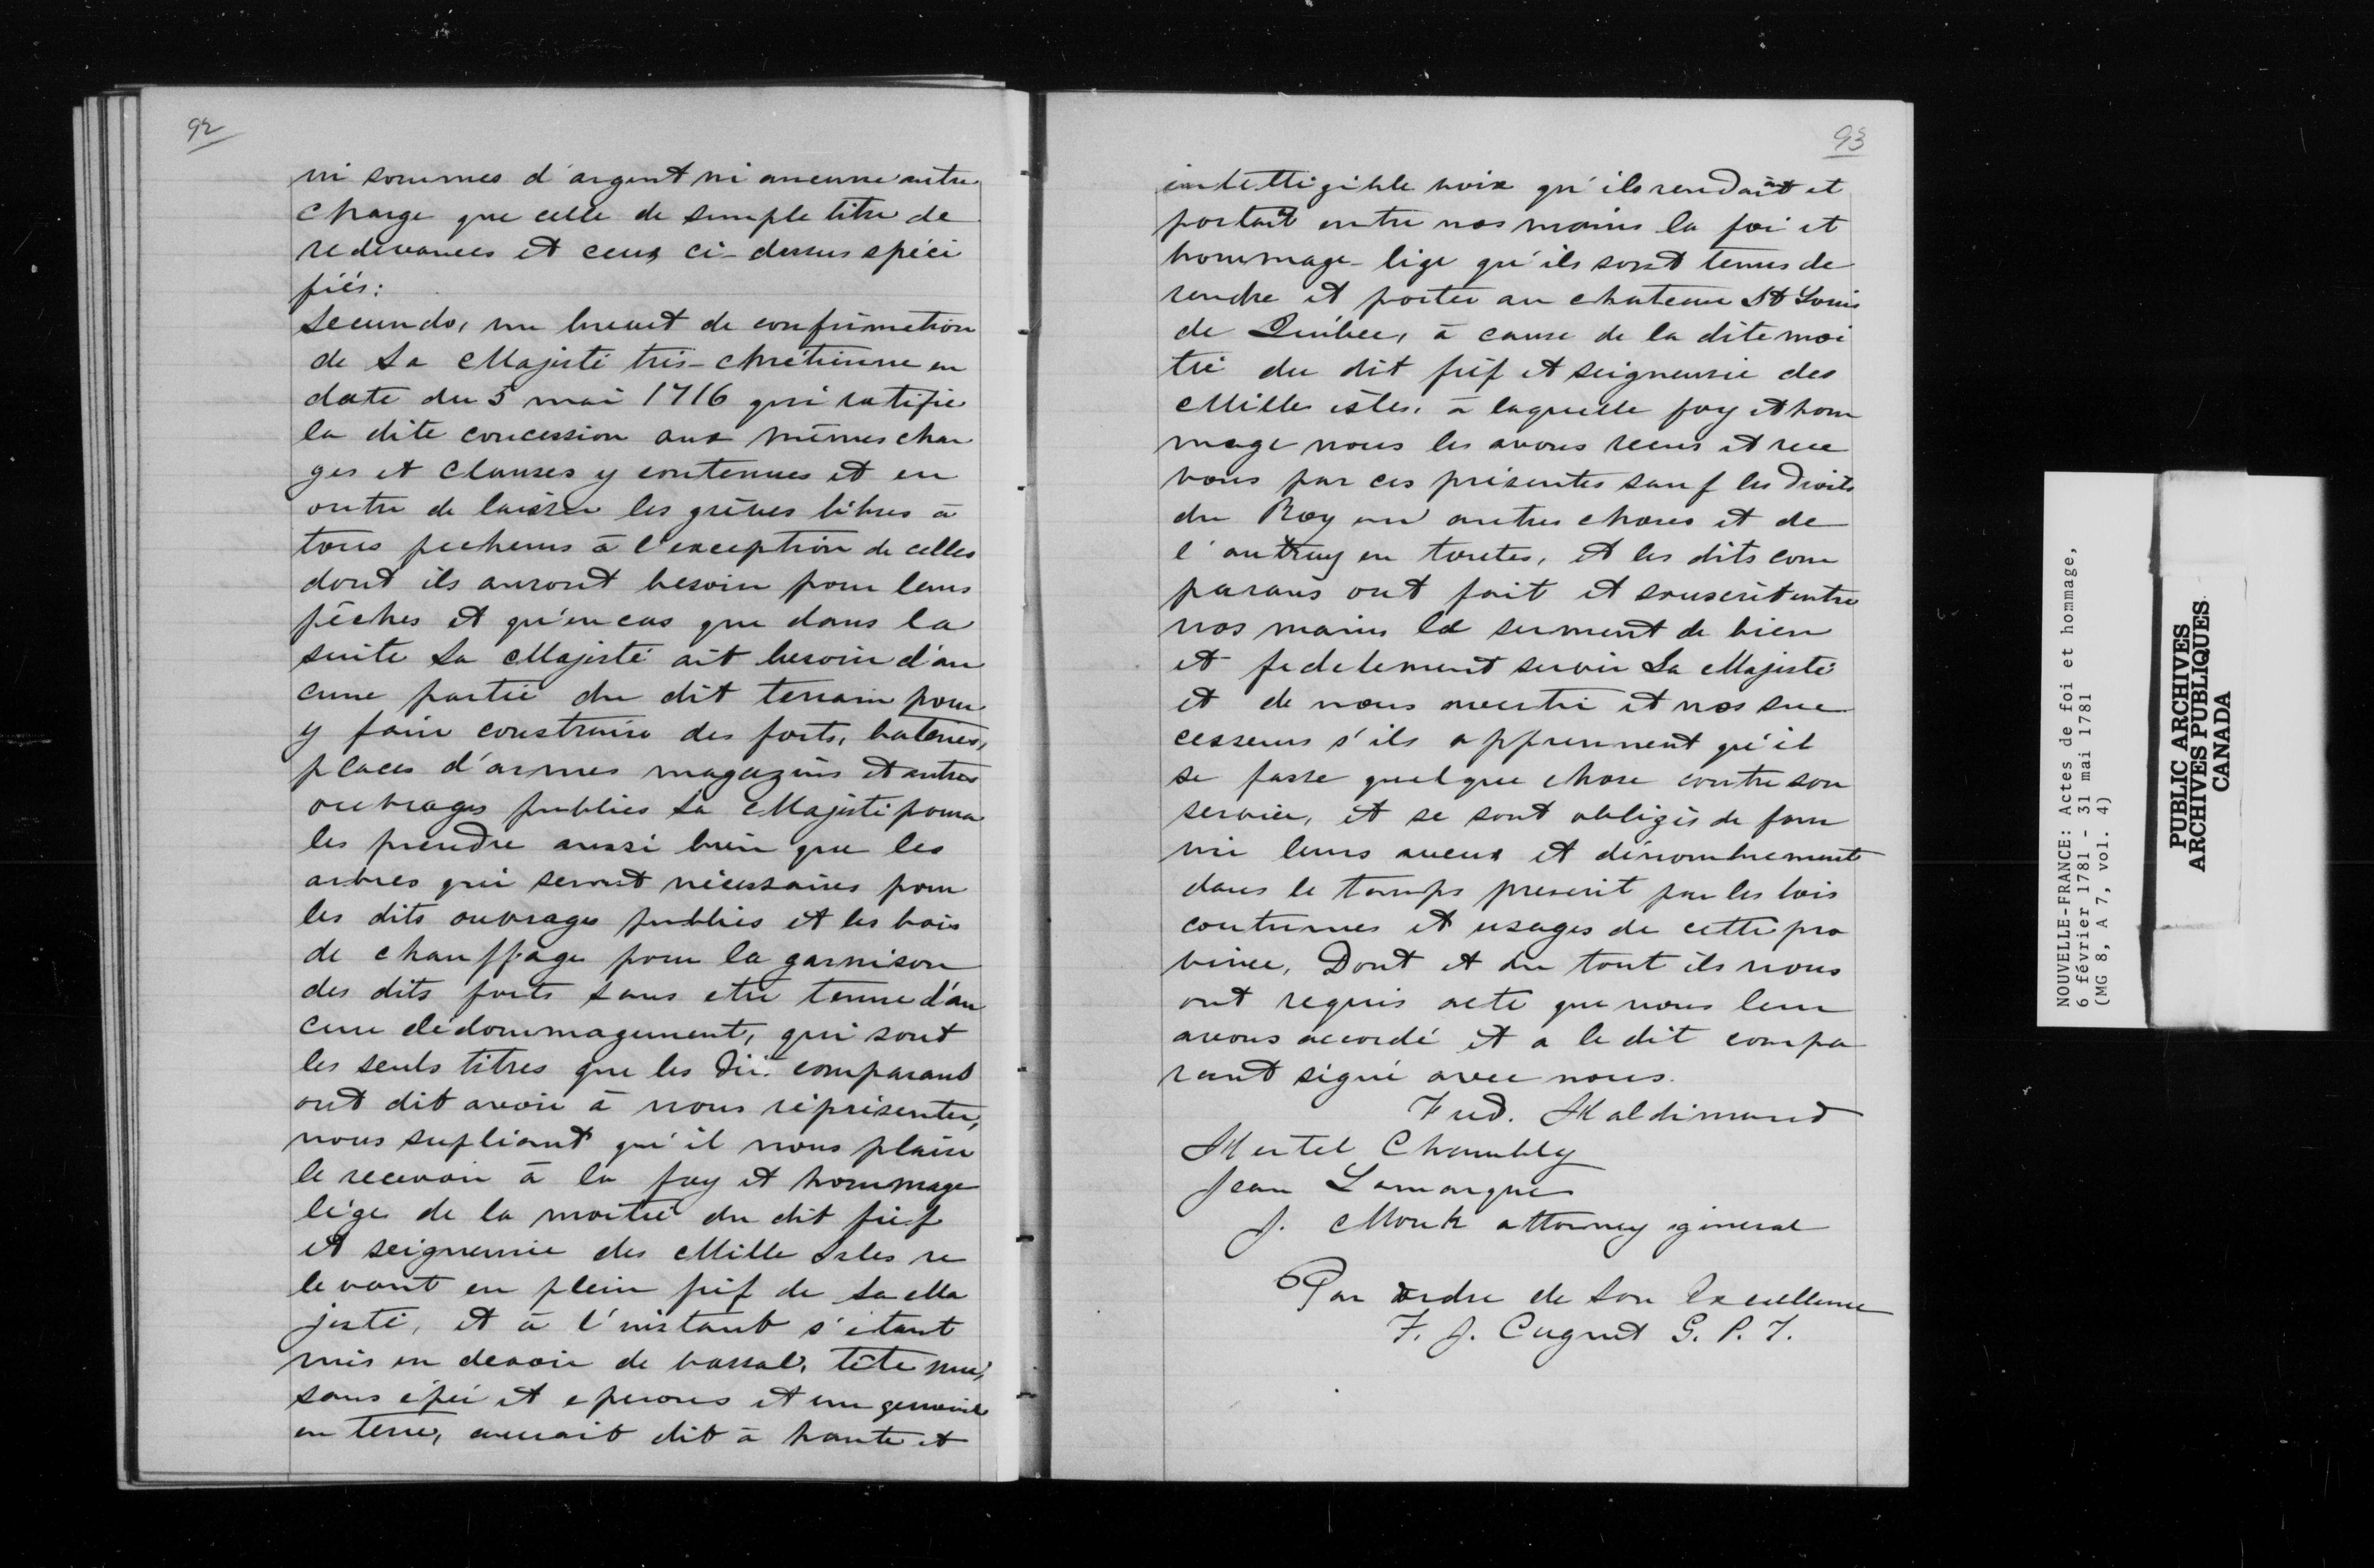 92
ni sommes d'argent ni aucune autre
charge que celle de simple titre de
redevances et ceux ci-dessus spéci
fiés:
Secundo, un brevet de confirmation
de Sa Majesté très-chrétienne en
date du 5 mai 1716 qui ratifie
la dite concession aux mêmes char
ges et clauses y contenues et en
outre de laisser les grèves libres à
tous pecheurs à l'exception de celles
dont ils auront besoin pour leurs
pêches et qu'en cas que dans la
suite Sa Majesté ait besoin d'au
cune partie du dit terrain pour
y faire construire des forts, bateries,
places d'armes magazins et autres
ouvrages publics Sa Majesté pourra
les prendre aussi bien que les
arbres qui seront nécessaires pour
les dits ouvrages publics et les bois
de chauffage pour la garnison
des dits forts sans etre tenue d'au
cun dédommagement, qui sont
les seuls titres que les dit comparant
ont dit avoir à nous réprésenter,
nous supliant qu'il nous plaise
le recevoir à la foy et hommage
lége de la moitié du dit fief
et seigneurie des Mille Isles re
levant en plein fief de Sa Ma
jesté, et à l'instant s'étant
mis en devoir de vassal, tête nue,
sans épée et eperons et un genouil
en terre, aurait dit à haute et
93
intelligible voix qu'ils rendaient et
portait entre nos mains la foi et
hommage-lige qu'ils sont tenus de
rendre et porter au chateau St Louis
de Québec, à cause de la dite moi
tié du dit fief et seigneurie des
Mille isles, à laquelle foy et hom
mage nous les avons recus et rece
vons par ces présentes sauf les droits
du Roy en autres choses et de
l'autruy en toutes, et les dits com
parans ont fait et souscrit entre
nos mains le serment de bien
et fidelement servir Sa Majesté
et de nous avertir et nos suc
cesseurs s'ils apprennent qu'il
se fasse quelque chose contre son
service, et se sont obligés de four
nir leurs aveux et dénombrements
dans le temps prescrit par les lois
coutumes et usages de cette pro
vince, Dont et du tout ils nous
ont requis acte que nous leur
avons accordé et a le dit compa
rant signé avec nous.
Fred. Haldimand
Hertel Chambly
Jean Lamarque
J. Monk attorney général
Par ordre de Son Excellence
F. J. Cugnet G. P. T.
NOUVELLE-FRANCE: Actes de foi et hommage,
6 février 1781 - 31 mai 1781
(MG 8, A 7, vol. 4)
PUBLIC ARCHIVES
ARCHIVES PUBLIQUES
CANADA